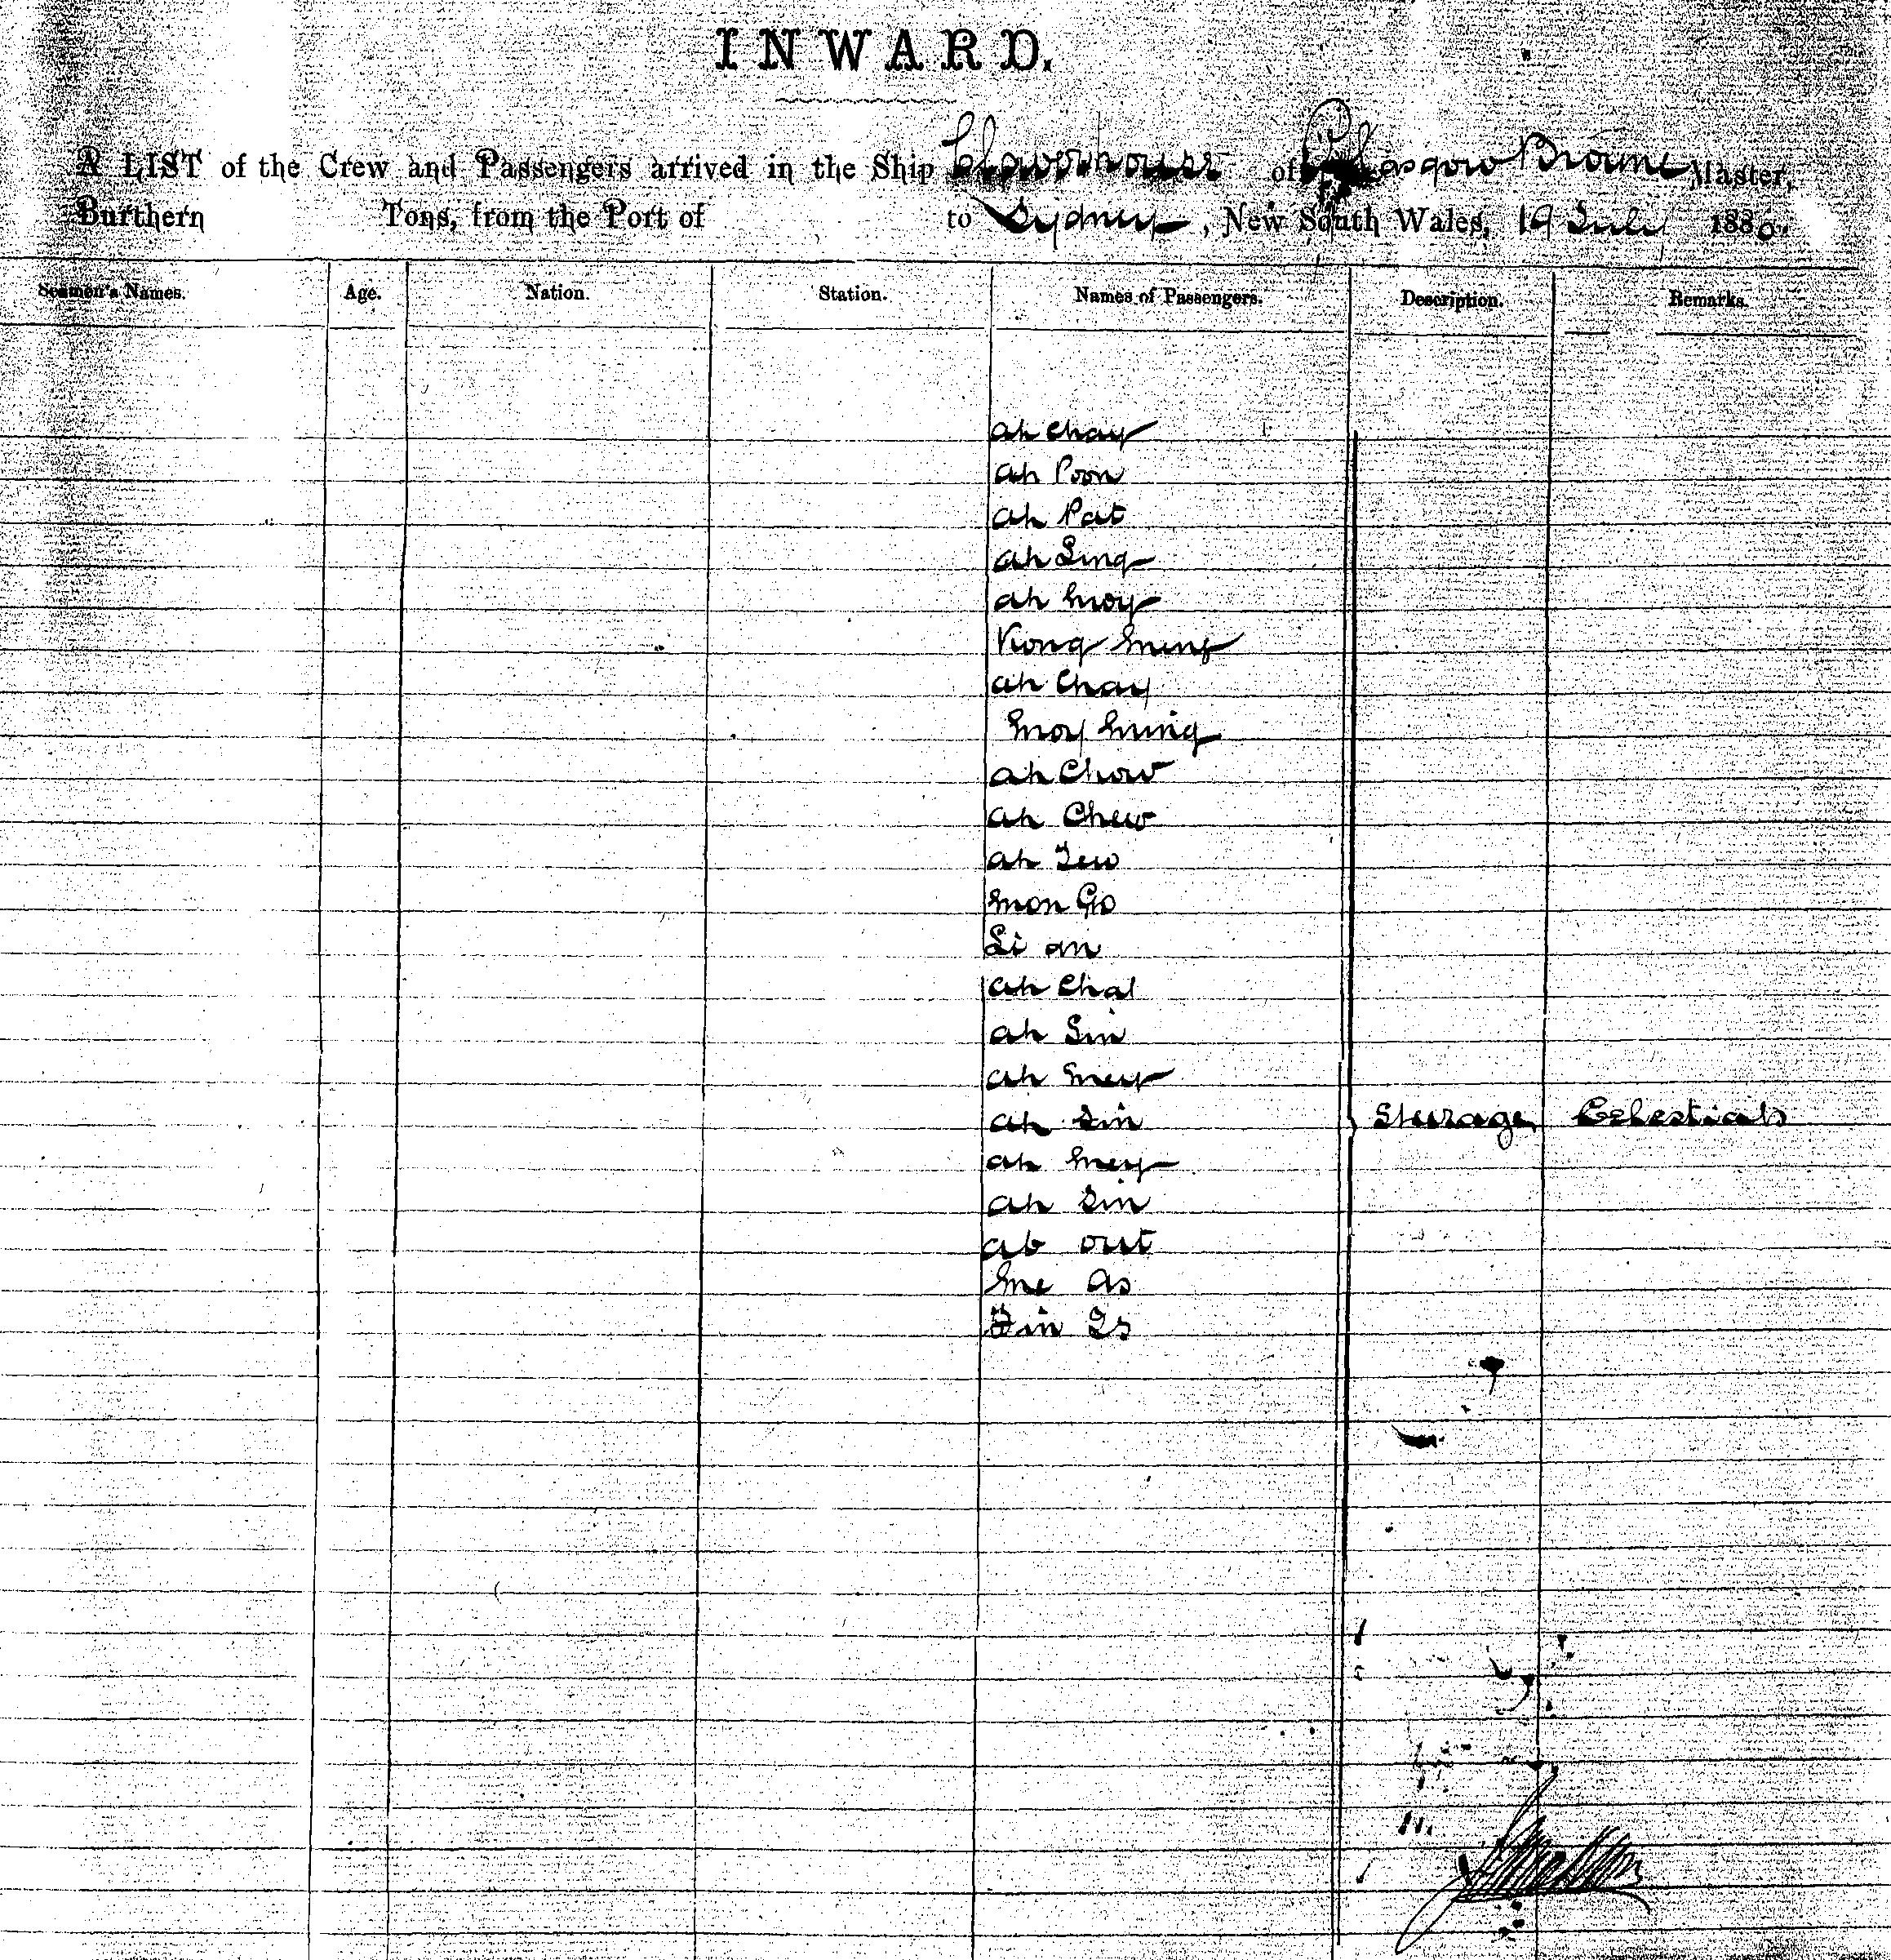 INWARD.
A LIST of the Crew and Passengers arrived in the Ship Claverhouse of Glasgow Browne Master,
Burthern Tons, from the Port of to Sydney, New South Wales, 19 July 1880.
Seamen's Names. Age. Nation. Station. Names of Passengers. Description. Remarks.
Ah Chay
Ah Poon
Ah Pat
Ah Ling
Ah Moy
Kong Ming
Ah Chay
Moy Ming
Ah Chow
Ah Chew
Ah Lew
Mon Go
Li on
Ah Chal
Ah Sin
Ah Mey
Ah Sin Steerage Celestials
Ah Mey
Ah Sin
Ab out
Me As